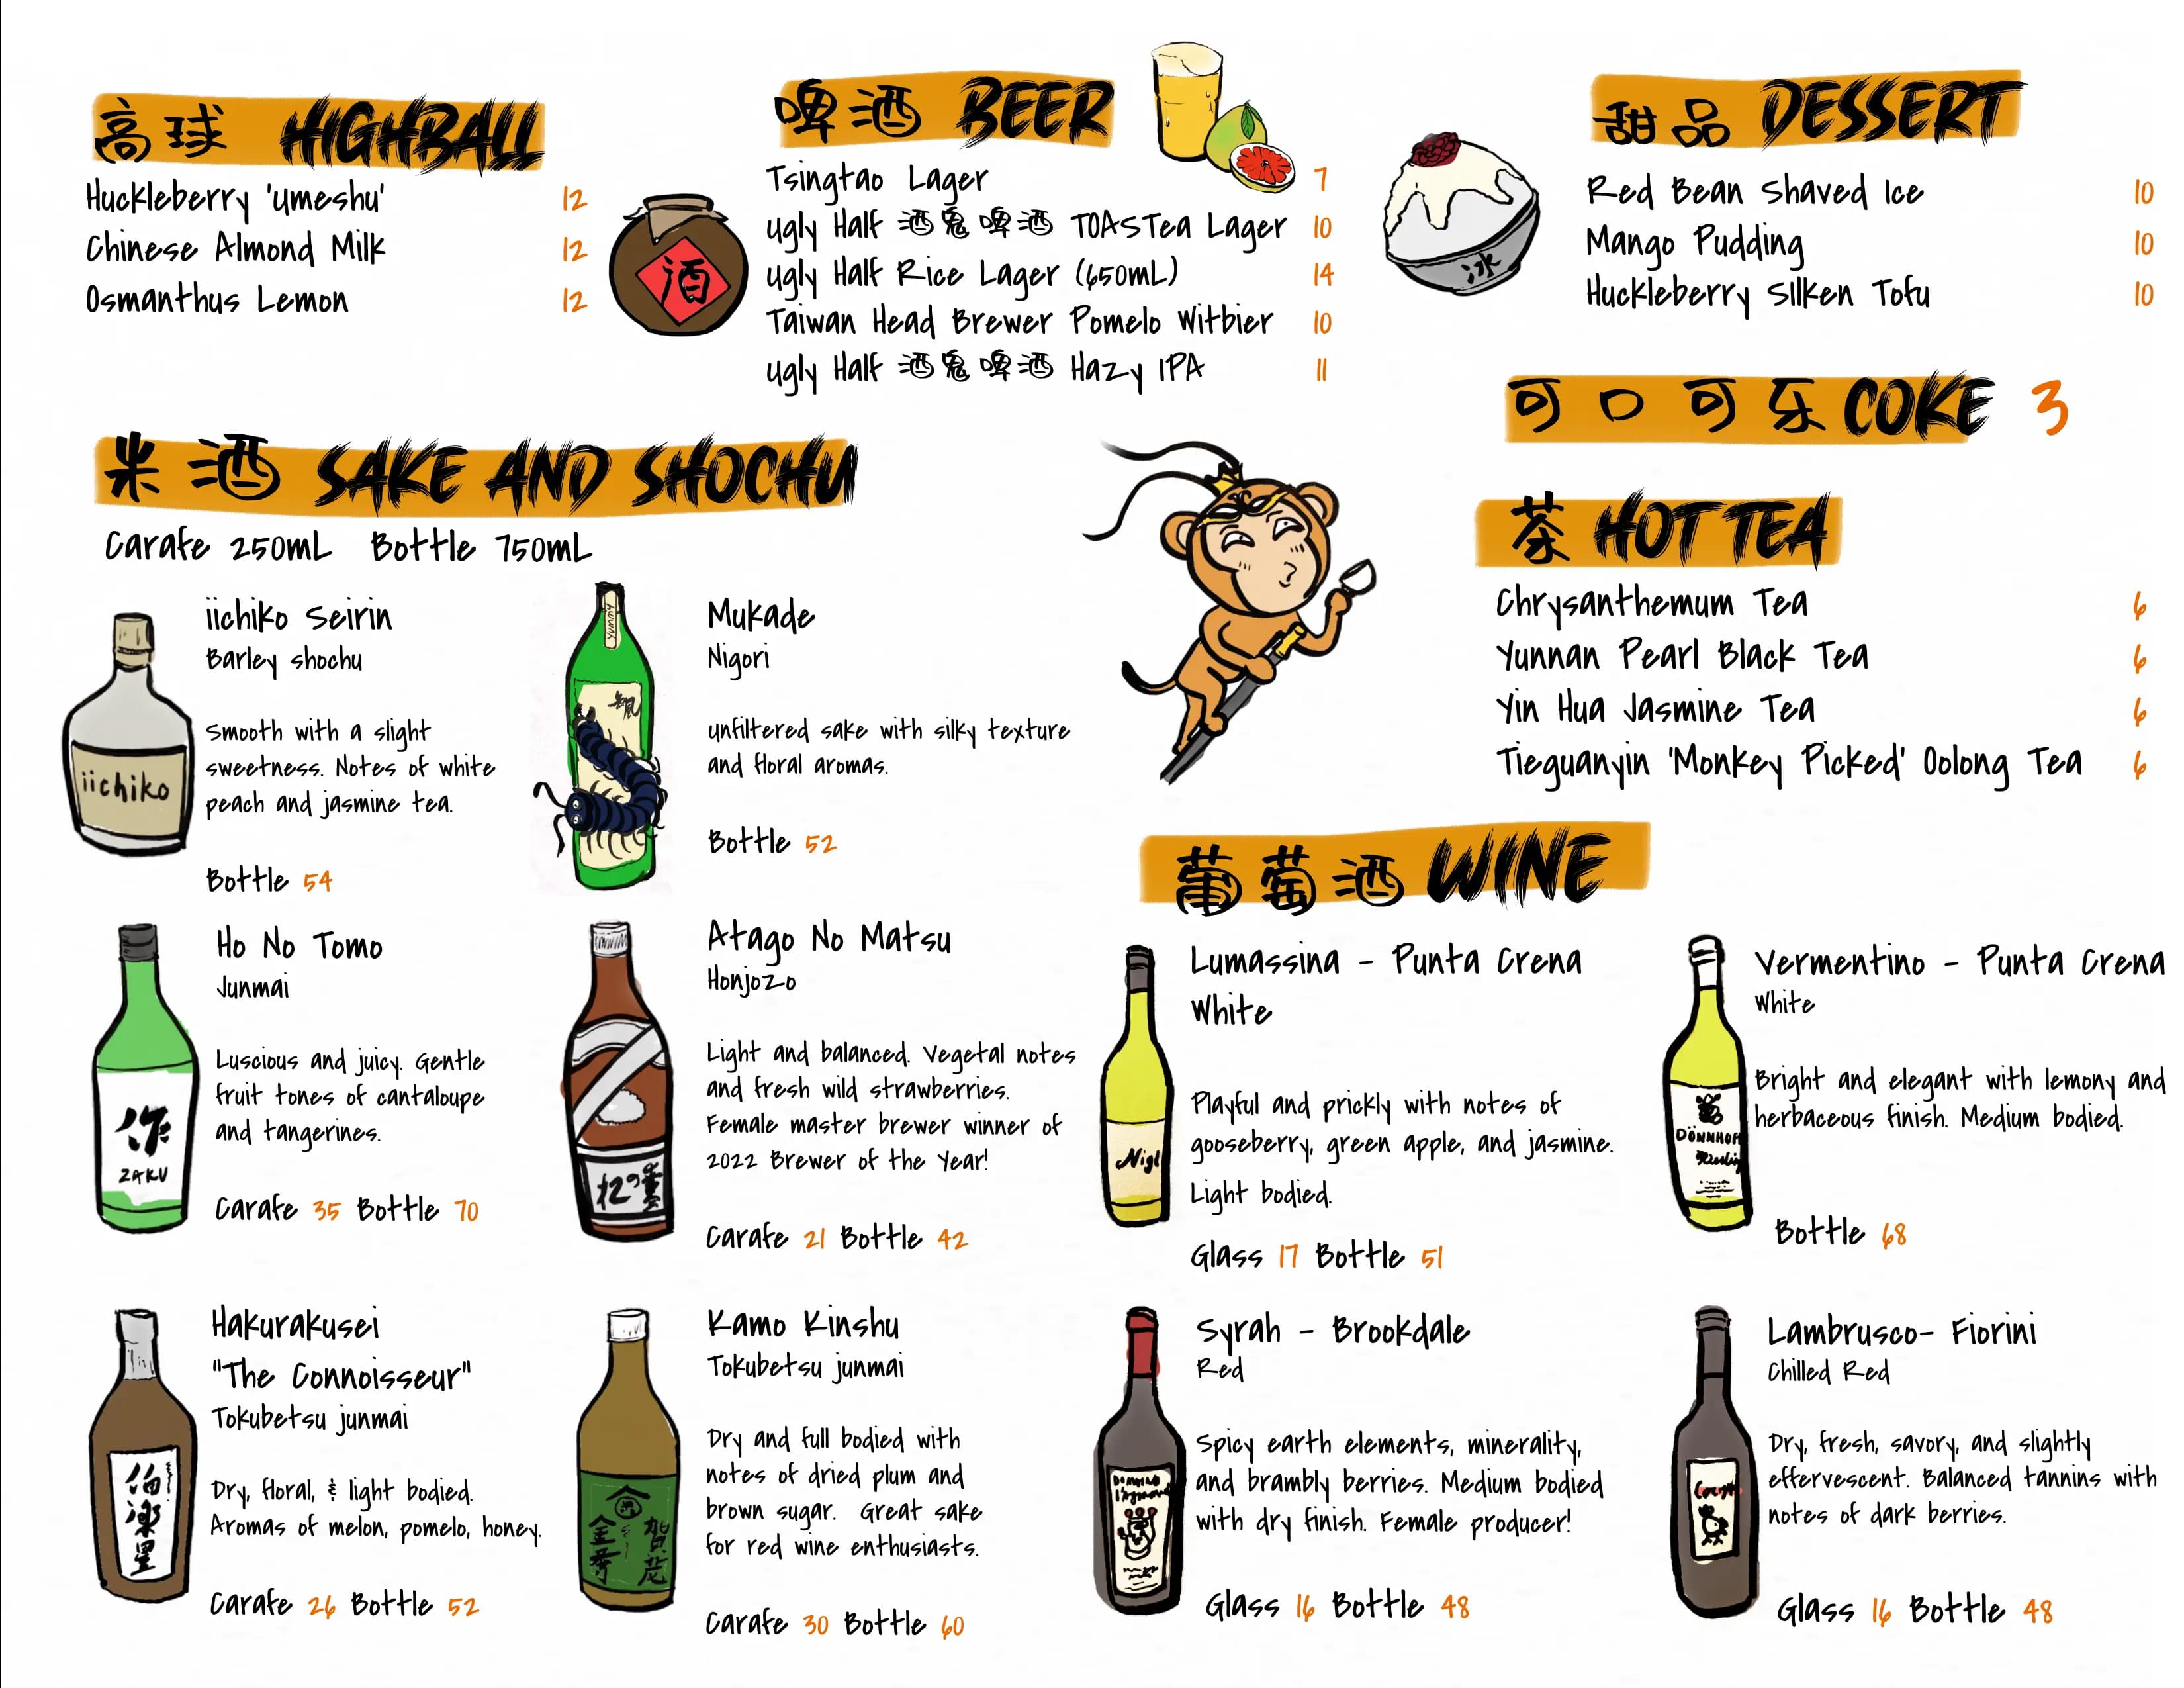 高球 HIGHBALL
Huckleberry 'umeshu' 12
Chinese Almond Milk 12
Osmanthus Lemon 12
酒
啤酒 BEER
Tsingtao Lager 7
ugly Half 酒鬼啤酒 TOASTea Lager 10
ugly Half Rice Lager (650mL) 14
Taiwan Head Brewer Pomelo Witbier 10
ugly Half 酒鬼啤酒 Hazy IPA 11
冰
甜品 DESSERT
Red Bean Shaved Ice 10
Mango Pudding 10
Huckleberry Silken Tofu 10
可口可乐 COKE 3
茶 HOT TEA
Chrysanthemum Tea 6
Yunnan Pearl Black Tea 6
Yin Hua Jasmine Tea 6
Tieguanyin 'Monkey Picked' Oolong Tea 6
米酒 SAKE AND SHOCHU
Carafe 250mL Bottle 750mL
iichiko
iichiko Seirin
Barley shochu
Smooth with a slight
sweetness. Notes of white
peach and jasmine tea.
Bottle 54
Mukade
Nigori
unfiltered sake with silky texture
and floral aromas.
Bottle 52
作
ZAKU
Ho No Tomo
Junmai
Luscious and juicy. Gentle
fruit tones of cantaloupe
and tangerines.
Carafe 35 Bottle 70
Atago No Matsu
Honjozo
Light and balanced. Vegetal notes
and fresh wild strawberries.
Female master brewer winner of
2022 Brewer of the Year!
Carafe 21 Bottle 42
伯楽星
Hakurakusei
"The Connoisseur"
Tokubetsu junmai
Dry, floral, & light bodied.
Aromas of melon, pomelo, honey.
Carafe 26 Bottle 52
賀茂
金秀
Kamo Kinshu
Tokubetsu junmai
Dry and full bodied with
notes of dried plum and
brown sugar. Great sake
for red wine enthusiasts.
Carafe 30 Bottle 60
葡萄酒 WINE
Nigl
Lumassina - Punta Crena
White
Playful and prickly with notes of
gooseberry, green apple, and jasmine.
Light bodied.
Glass 17 Bottle 51
DÖNNHOFF
Riesling
Vermentino - Punta Crena
White
Bright and elegant with lemony and
herbaceous finish. Medium bodied.
Bottle 68
Syrah - Brookdale
Red
Spicy earth elements, minerality,
and brambly berries. Medium bodied
with dry finish. Female producer!
Glass 16 Bottle 48
Lambrusco- Fiorini
Chilled Red
Dry, fresh, savory, and slightly
effervescent. Balanced tannins with
notes of dark berries.
Glass 16 Bottle 48